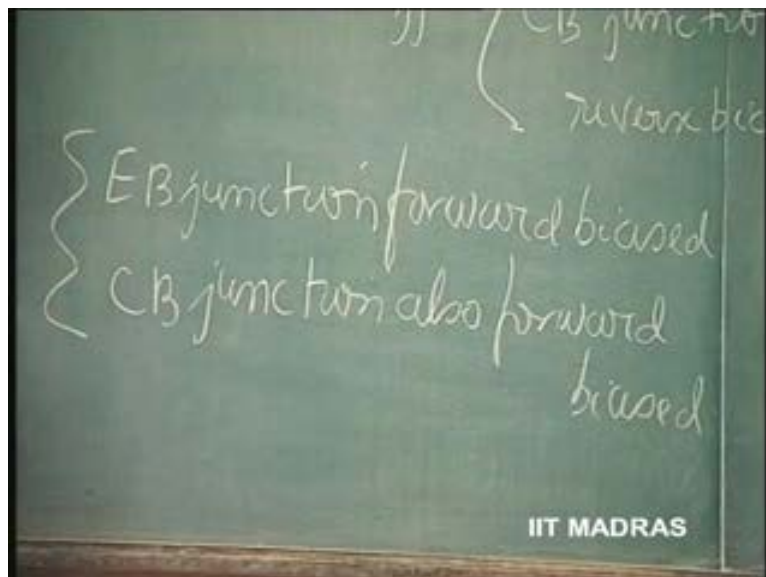 CB junctio
reverse bia
EB junction forward biased
CB junction also forward
biased
IIT MADRAS